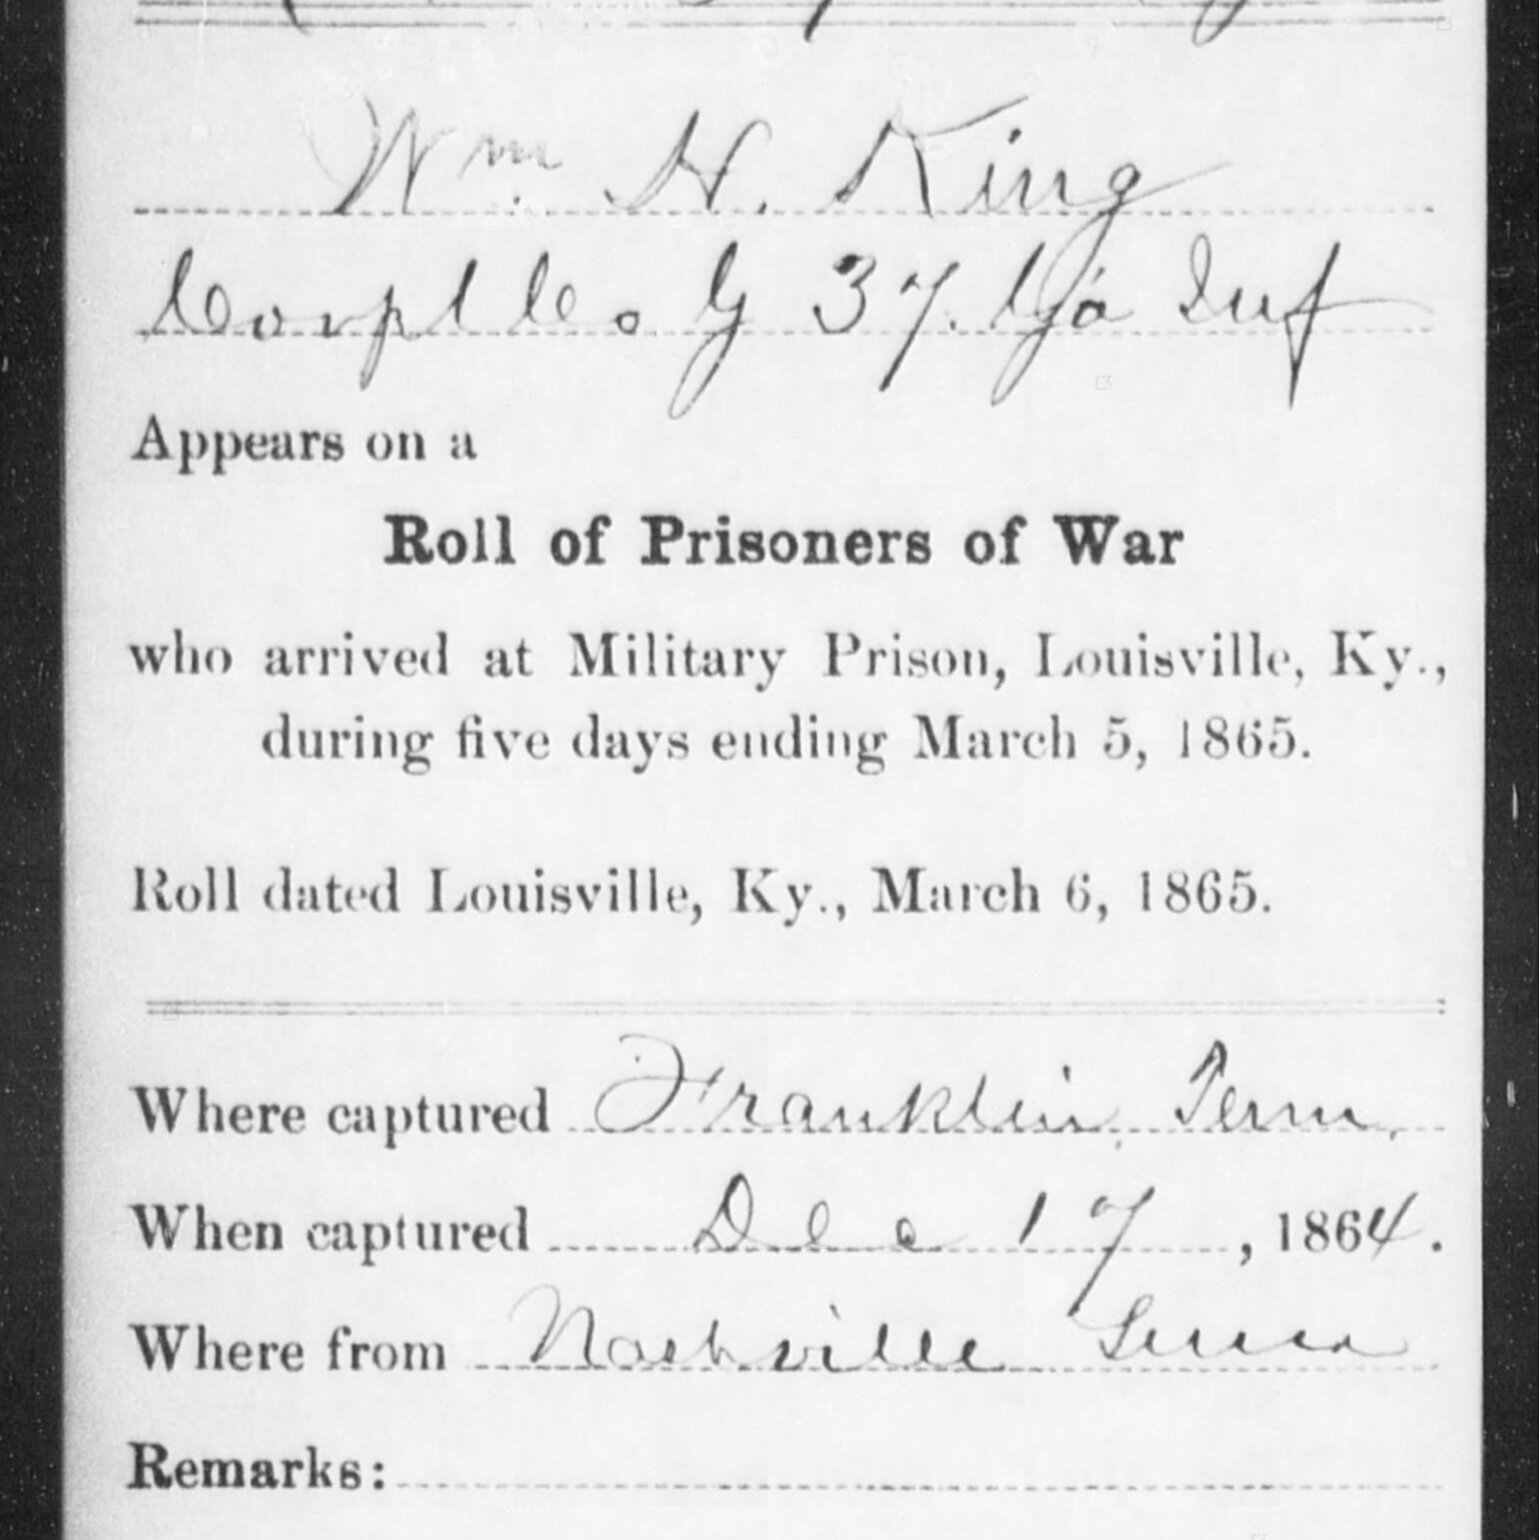 Wm. H. King
Corpl Co G 37. Ga Inf
Appears on a
Roll of Prisoners of War
who arrived at Military Prison, Louisville, Ky.,
during five days ending March 5, 1865.
Roll dated Louisville, Ky., March 6, 1865.
Where captured Franklin, Tenn.
When captured Dec 17, 1864.
Where from Nashville Tenn
Remarks: